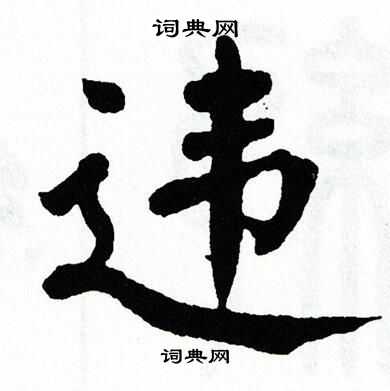 词典网
违
词典网